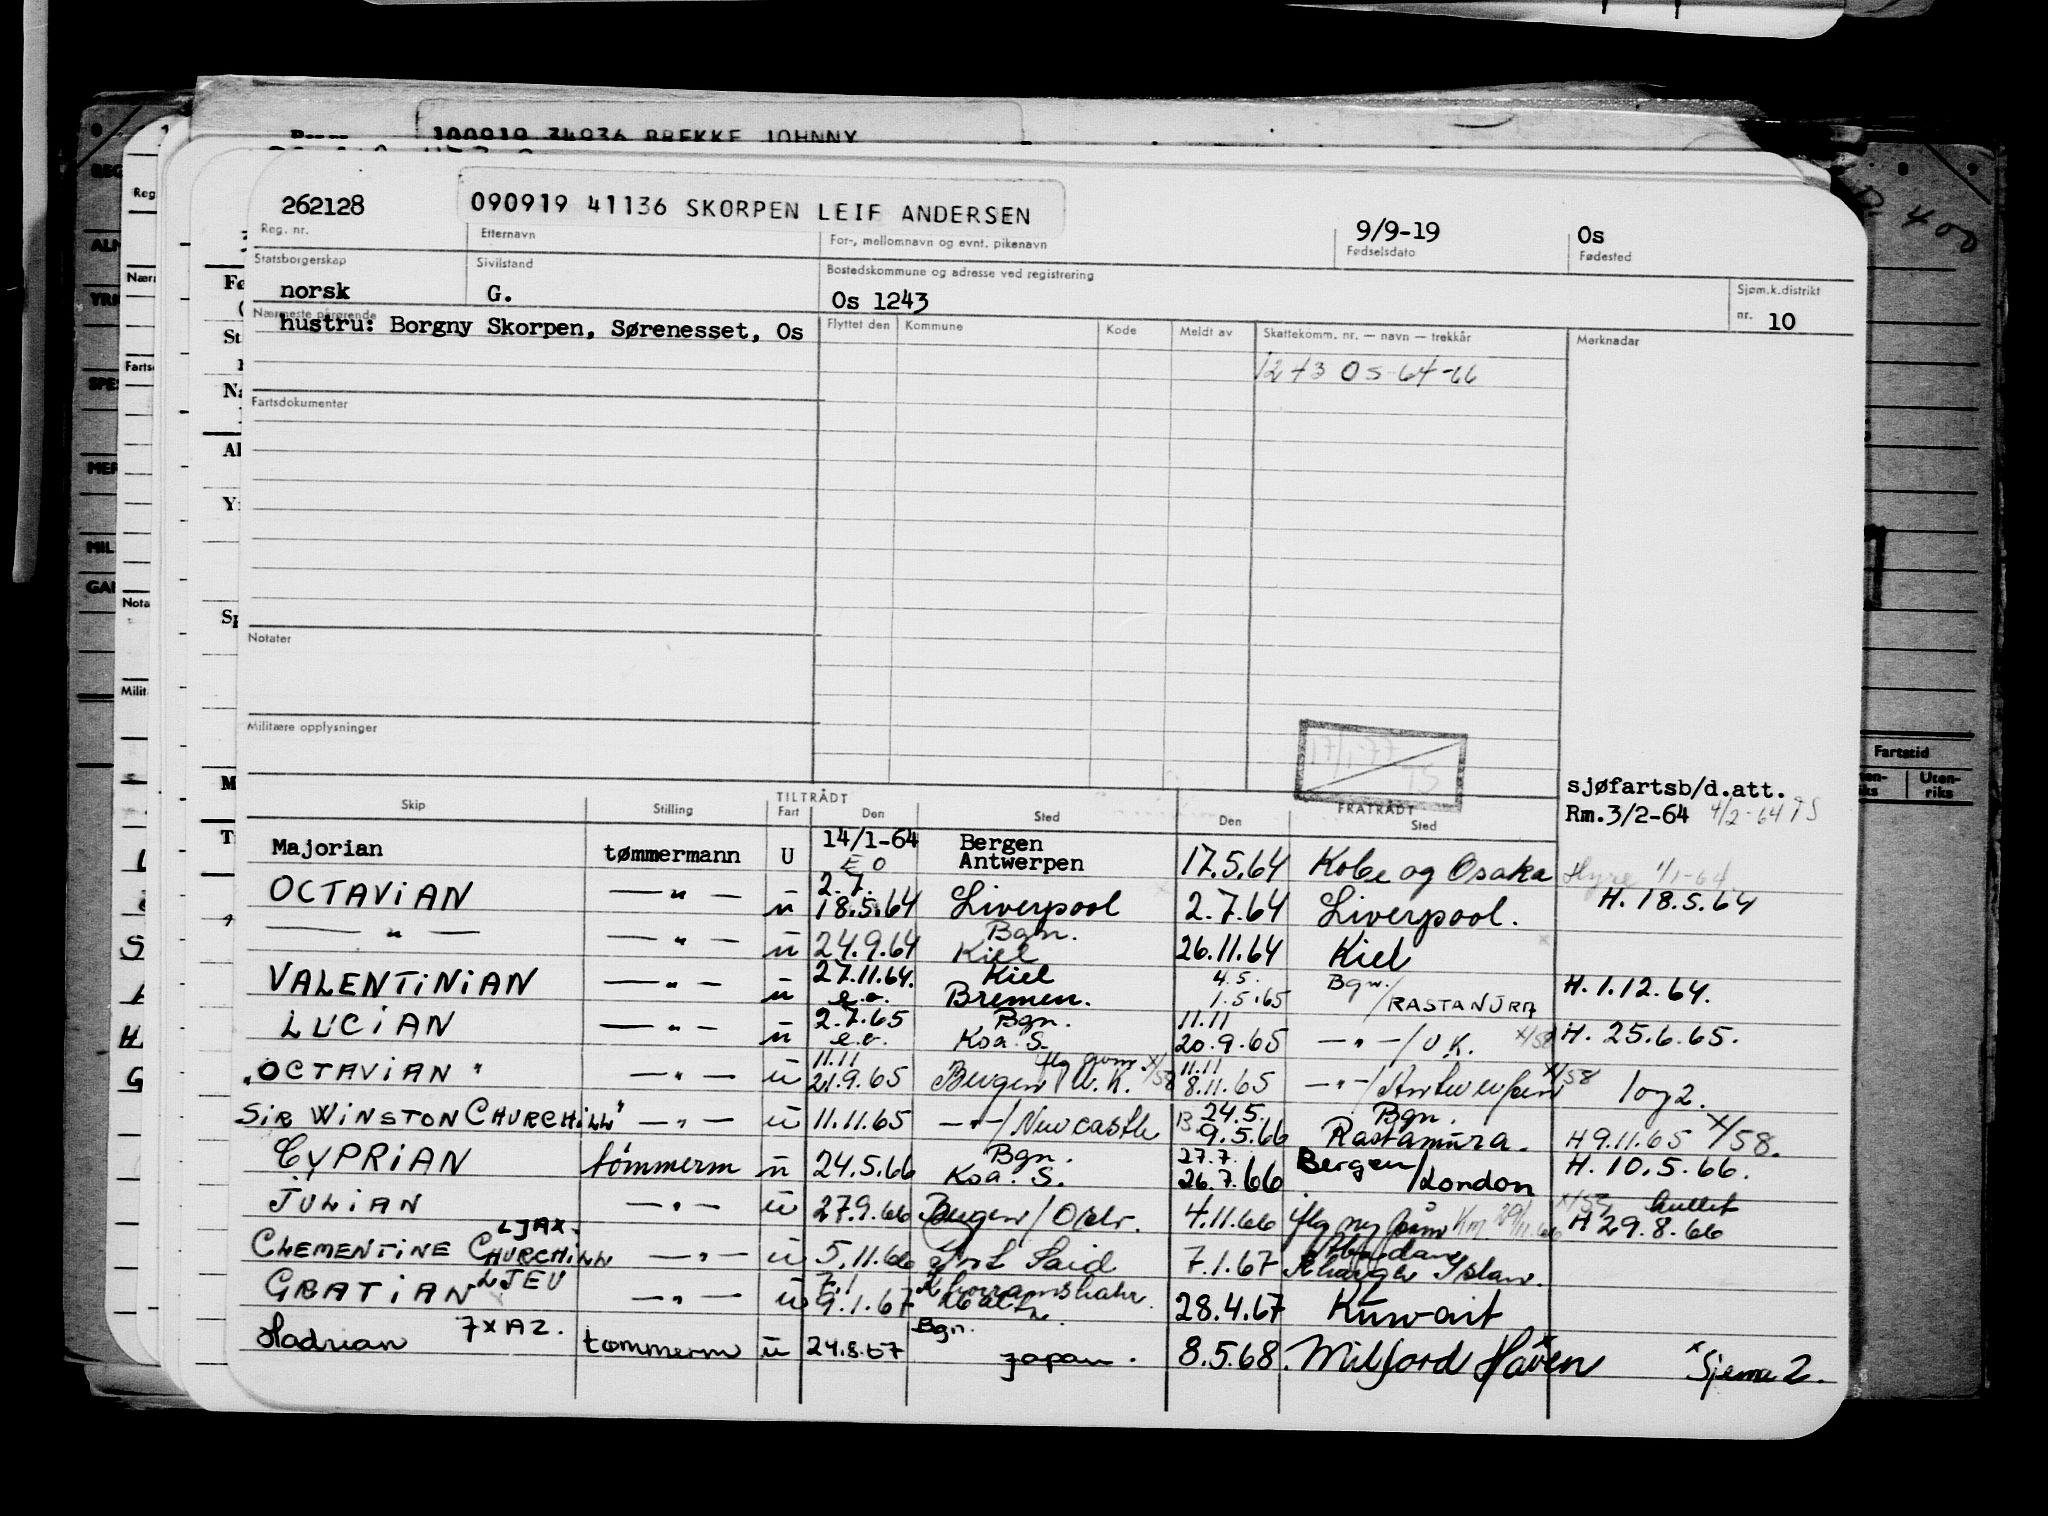 100919 34936 BREKKE JOHNNY
262128 090919 41136 SKORPEN LEIF ANDERSEN 9/9-19 Os
Reg. nr. Etternavn For-, mellomnavn og evnt. pikenavn Fødselsdato Fødested
Statsborgerskap Sivilstand Bostedskommune og adresse ved registrering Sjøm.k.distrikt
norsk G. Os 1243 nr. 10
Nærmeste pårørende Flyttet den Kommune Kode Meldt av Skattekomm. nr. — navn — trekkår Merknader
hustru: Borgny Skorpen, Sørenesset, Os
1243 Os 64-66
Fartsdokumenter
Notater
Militære opplysninger
sjøfartsb/d.att.
Rm.3/2-64 4/2-64 TS
TILTRÅDT FRATRÅDT
Skip Stilling Fart Den Sted Den Sted
Majorian tømmermann U 14/1-64 Bergen Antwerpen 17.5.64 Kobe og Osaka Hyre 1/1-64
E O
OCTAVIAN — " — u 2.7. 18.5.64 Liverpool 2.7.64 Liverpool. H. 18.5.64
— " — — " — u 24.9.64 Bgn. Kiel 26.11.64 Kiel
VALENTINIAN — " — u 27.11.64. e.o. Kiel Bremen. 4.5. 1.5.65 Bgn. / RASTANURA H. 1.12.64.
LUCIAN — " — u 2.7.65 e.o. Bgn. Koa. S. 11.11 20.9.65 — " — / U.K. X/58 H. 25.6.65.
"OCTAVIAN" — " — u 11.11 21.9.65 Bergen / U.K. X/58 11.11 8.11.65 — " — / Antwerpen X/58 1 og 2.
SIR WINSTON CHURCHILL" — " — u 11.11.65 — " — / Newcastle 24.5. 9.5.66 Bgn. Rastanura. H 9.11.65 X/58.
CYPRIAN tömmerm u 24.5.66 Bgn. Koa. S. 27.7. 26.7.66 Bergen / London H. 10.5.66.
JULIAN — " — u 27.9.66 Bergen / 4.11.66 iflg ny X/55 H 29.8.66
CLEMENTINE CHURCHILL LJAX. — " — u 5.11.66 Port Said 7.1.67 Abadan Kharger Islan.
GRATIAN LJEV — " — u 7.1 9.1.67 Khorramshahr. 28.4.67 Kuwait
Hadrian 7XAZ. tømmerm u 24.8.67 Bgn. Japan. 8.5.68. Milford Haven x Sjema 2.
Fartstid
Uten-
riks